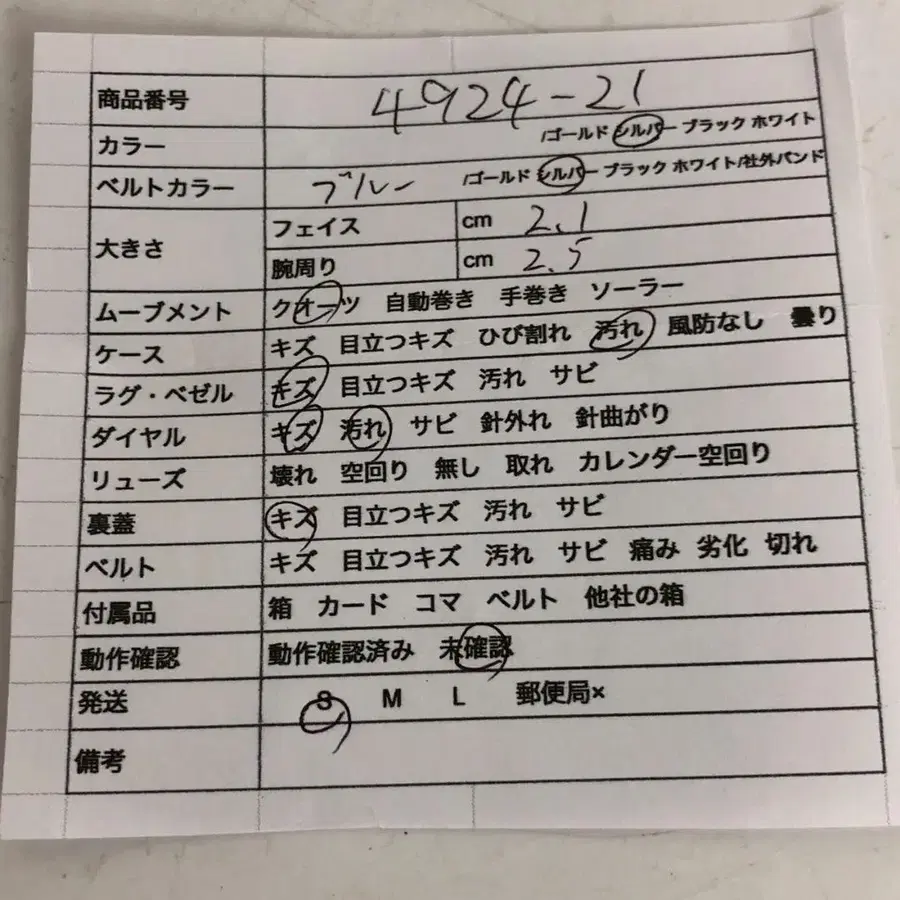 商品番号 4924-21
カラー /ゴールド シルバー ブラック ホワイト
ベルトカラー ブルー /ゴールド シルバー ブラック ホワイト/社外バンド
大きさ フェイス cm 2.1
腕周り cm 2.5
ムーブメント クオーツ 自動巻き 手巻き ソーラー
ケース キズ 目立つキズ ひび割れ 汚れ 風防なし 曇り
ラグ・ベゼル キズ 目立つキズ 汚れ サビ
ダイヤル キズ 汚れ サビ 針外れ 針曲がり
リューズ 壊れ 空回り 無し 取れ カレンダー空回り
裏蓋 キズ 目立つキズ 汚れ サビ
ベルト キズ 目立つキズ 汚れ サビ 痛み 劣化 切れ
付属品 箱 カード コマ ベルト 他社の箱
動作確認 動作確認済み 未確認
発送 S M L 郵便局×
備考